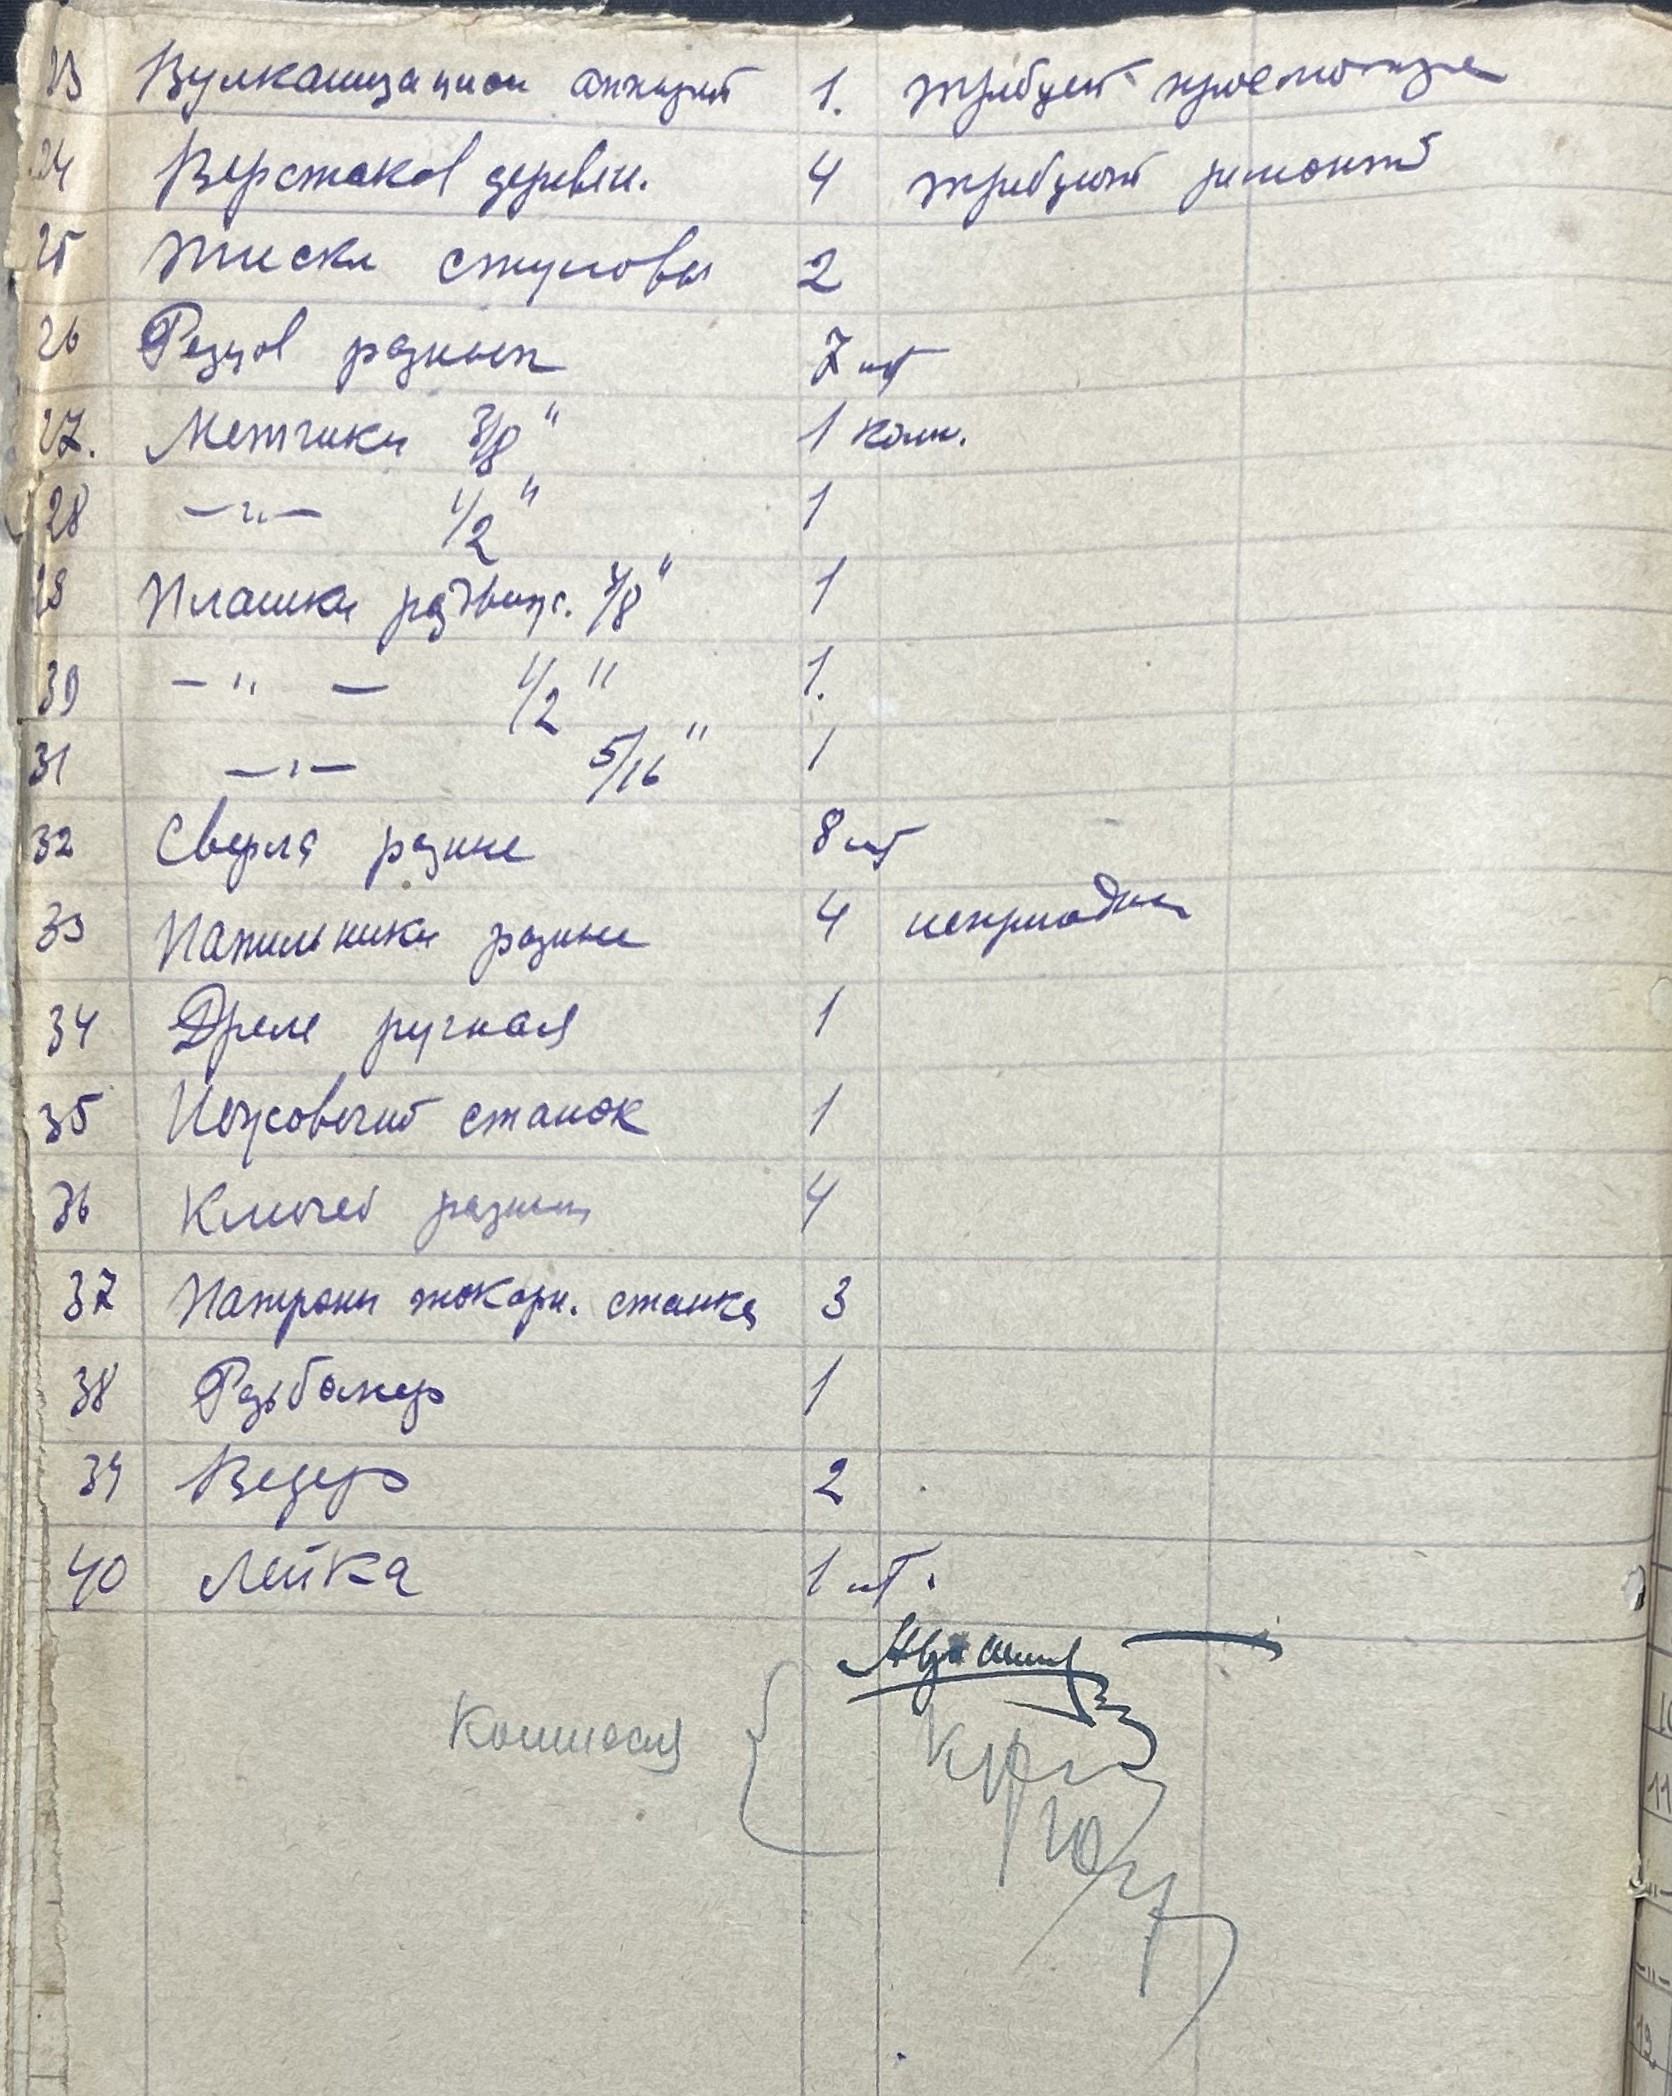 23 Вулканизацион аппарат 1. требует просмотра
24 Верстаков деревян. 4 требуют ремонт
25 Тиски стуловы 2
26 Резцов разных 7 шт
27. Метчики 3/8" 1 комп.
28 —"— 1/2" 1
29 Плашки раздвиж. 3/8" 1
30 —"— 1/2" 1.
31 —"— 5/16" 1
32 Сверла разные 8 шт
33 Напильники разные 4 непригодны
34 Дрель ручная 1
35 Ножовочный станок 1
36 Ключей разных 4
37 Патроны токарн. станка 3
38 Резьбомер 1
39 Ведер 2
40 Лейка 1 шт.
Комиссия {
11
12